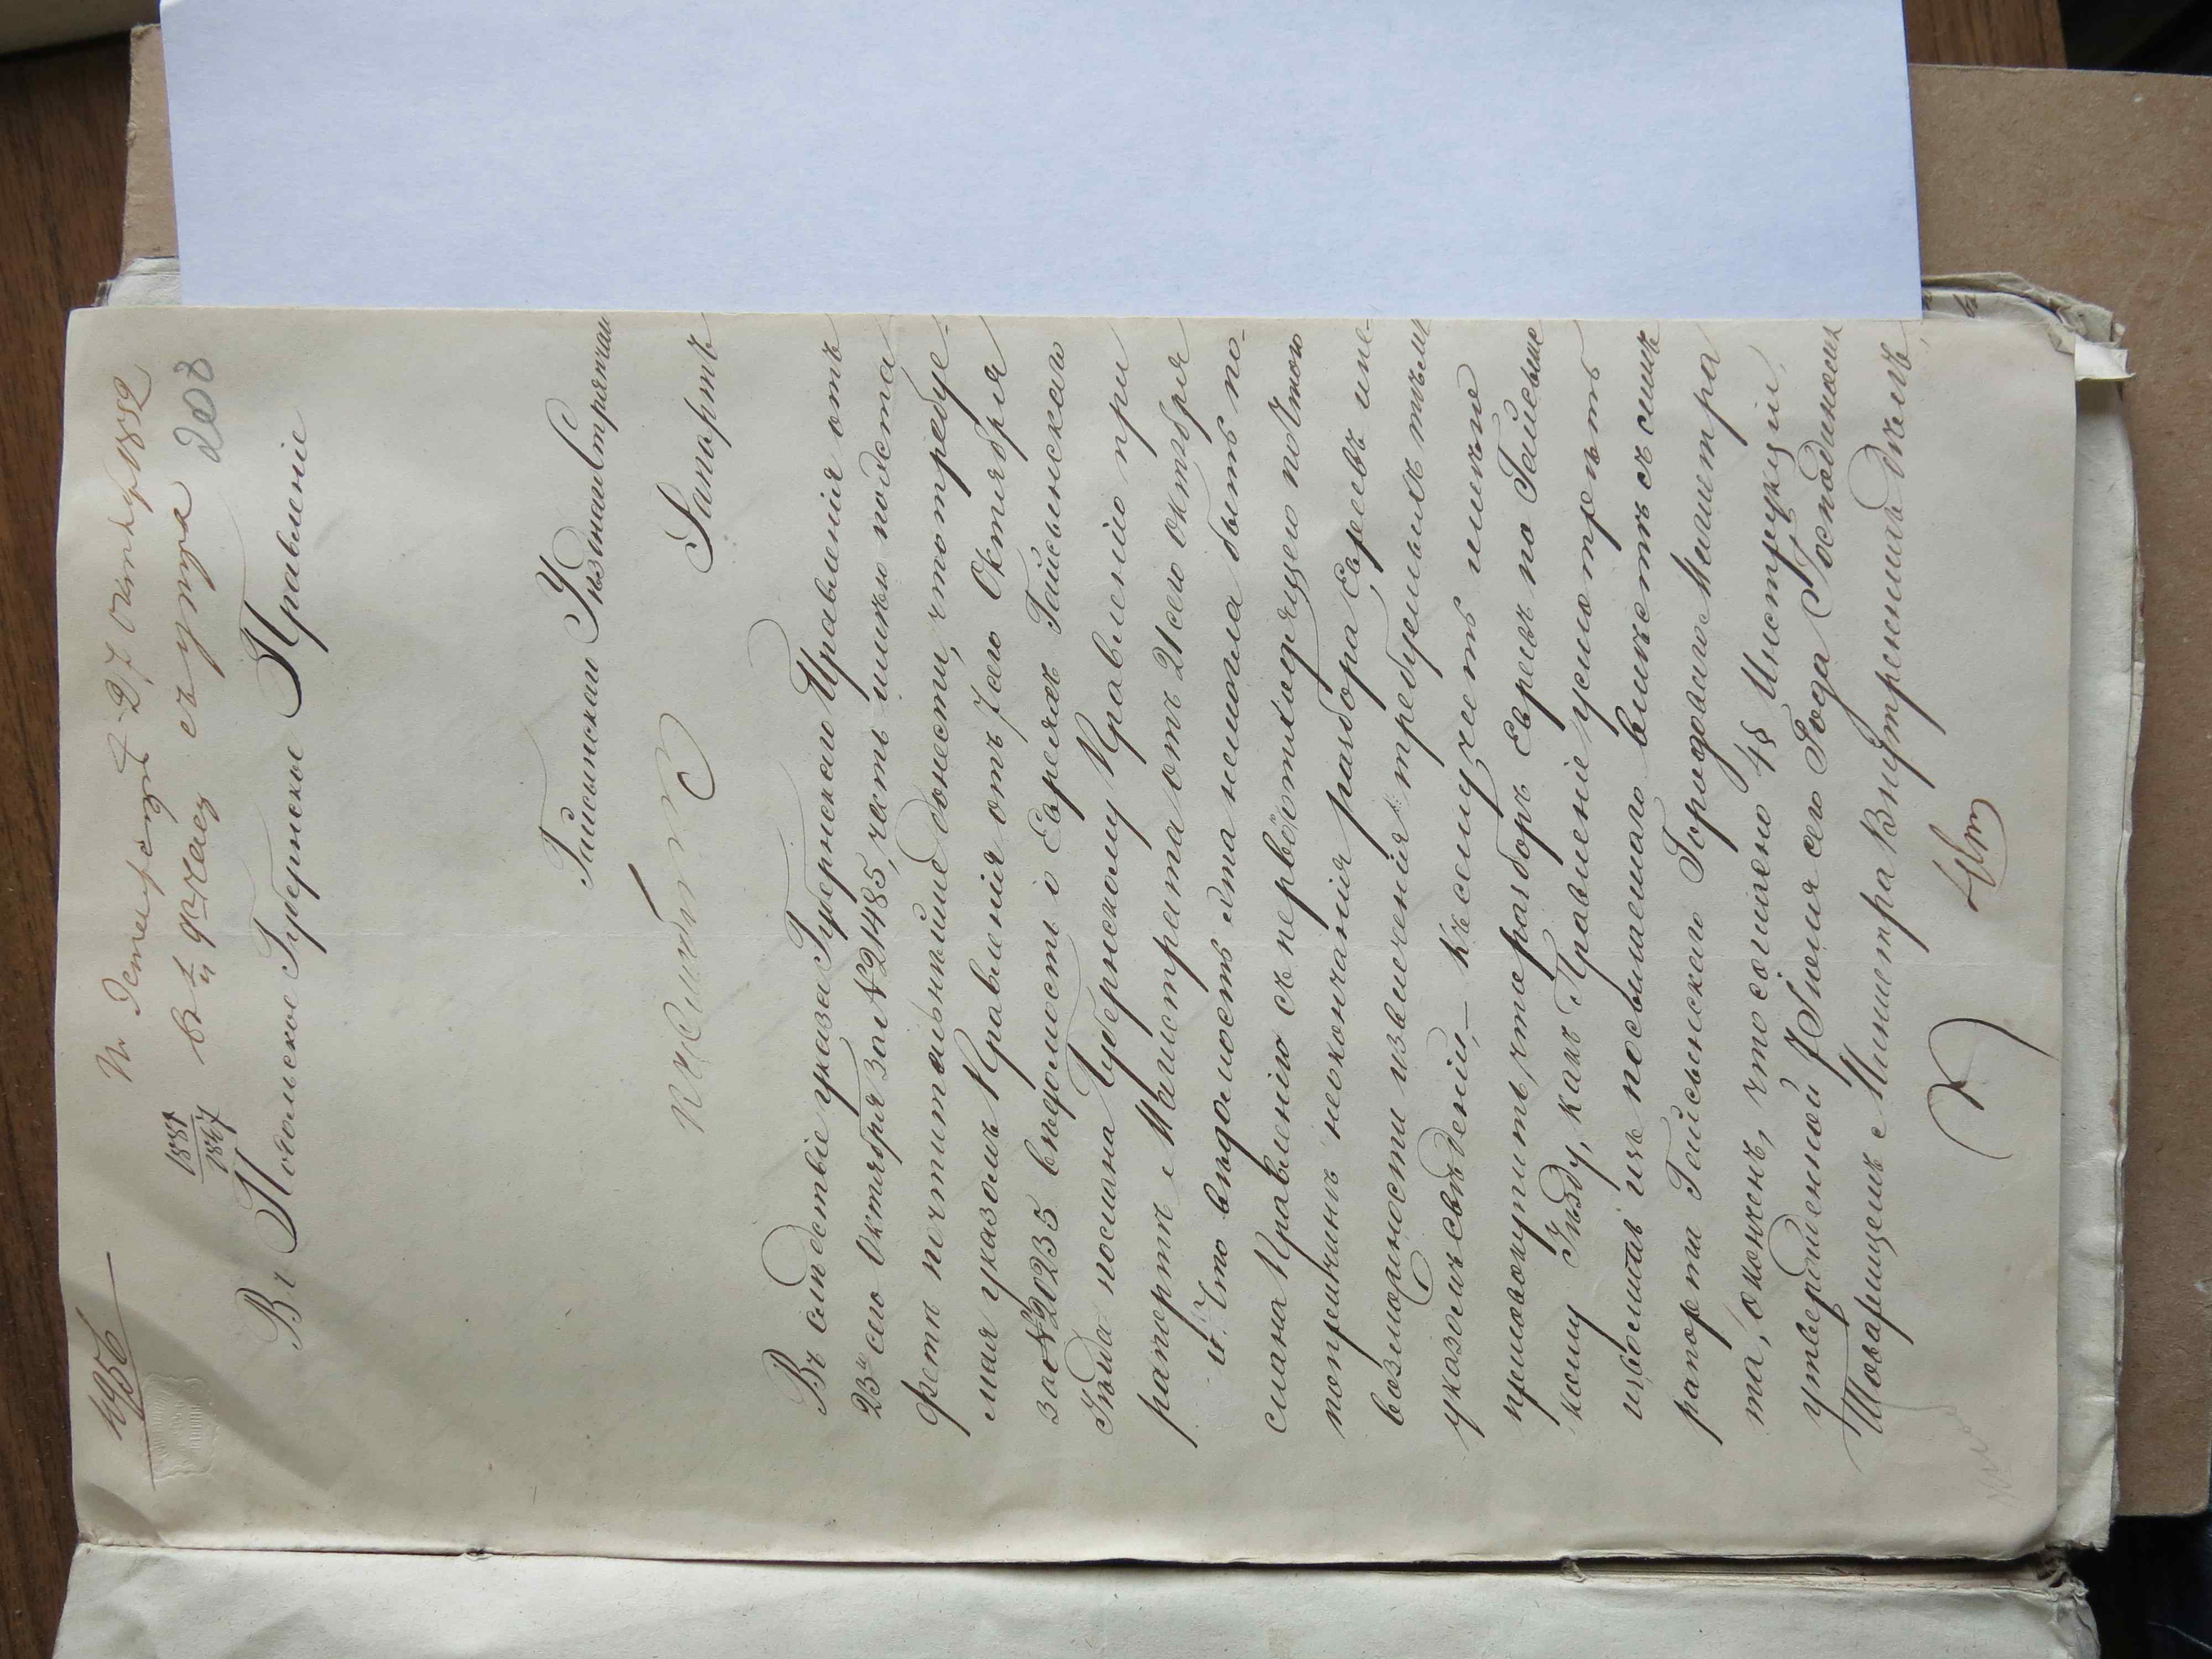 4956
1881
1847
27 октября 1852
въ 9 часу съ утра
208
Въ Подольское Губернское Правленіе
Гайсинскаго
Уѣзднаго Стряпчаго
Рапортъ
Въ слѣдствіе указа Губернскаго Правленія отъ
23го сего Октября за № 21485, честь имѣю подста
почтительнѣйше донести, что требуе-
мая указомъ Правленія отъ 7 сего Октября
за № 20235 вѣдомость о Евреяхъ Гайсинскаго
Уѣзда послана Губернскому Правленію при
рапортѣ Магистрата отъ 21 сего октября
и что вѣдомость эта не могла быть по-
слана Правленію съ первоотходящею почтою
по причинѣ неокончанія разбора Евреевъ и не-
возможности извлеченія требуемыхъ тѣмъ
указомъ свѣденій, – къ сему честь имѣю
присовокупить, что разборъ Евреевъ по Гайсинс
кому Уѣзду, какъ Правленіе усмотрѣть
изволитъ изъ посылаемаго вмѣстѣ съ симъ
рапорта Гайсинскаго Городоваго Магистра
та, оконченъ, что согласно 4§ Инструкціи,
утвержденной 7 Іюля сего Года Господиномъ
Товарищемъ Министра Внутреннихъ Дѣлъ,